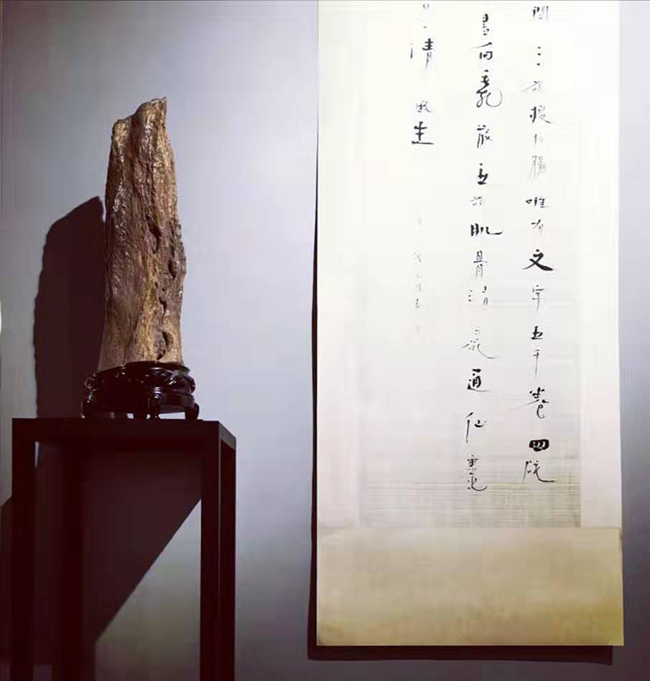 悶三碗搜枯腸唯有文字五千卷四碗
盡向毛孔散五碗肌骨清六碗通仙靈
清風生